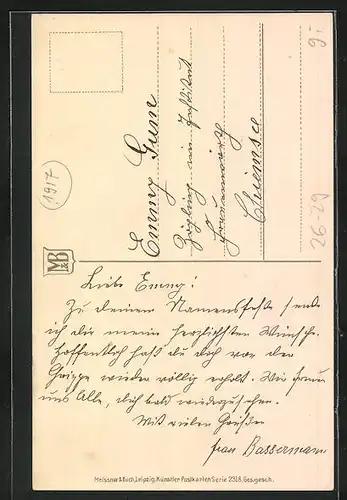 Emmy Gum
Zögling im Institut
Frauenwörth
Chiemsee
(1917)
9.-
26-29
M&B
Liebe Emmy!
Zu deinem Namensfeste sende
ich dir meine herzlichsten Wünsche.
Hoffentlich hast du dich von der
Grippe wieder völlig erholt. Wir freuen
uns Alle, dich bald wiederzusehen.
Mit vielen Grüßen
Frau Bassermann
Meissner & Buch, Leipzig. Künstler-Postkarten Serie 2318. Ges. gesch.